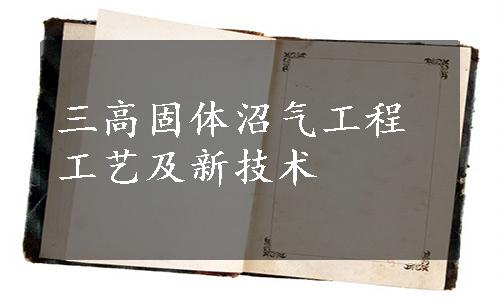 三高固体沼气工程
工艺及新技术